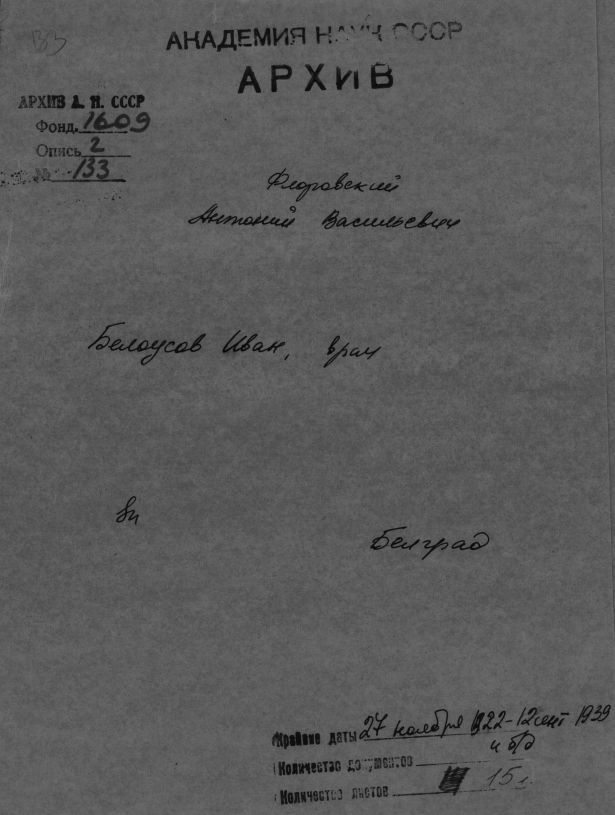 АКАДЕМИЯ НАУК СССР
АРХИВ
АРХИВ А. Н. СССР
Фонд. 1609
Опись 2
№ 133
Флоровский
Антоний Васильевич
Белоусов Иван, врач
Белград
Крайние даты 27 ноября 1922 - 12 сент 1939
и б/д
Количество документов
Количество листов 15 л.